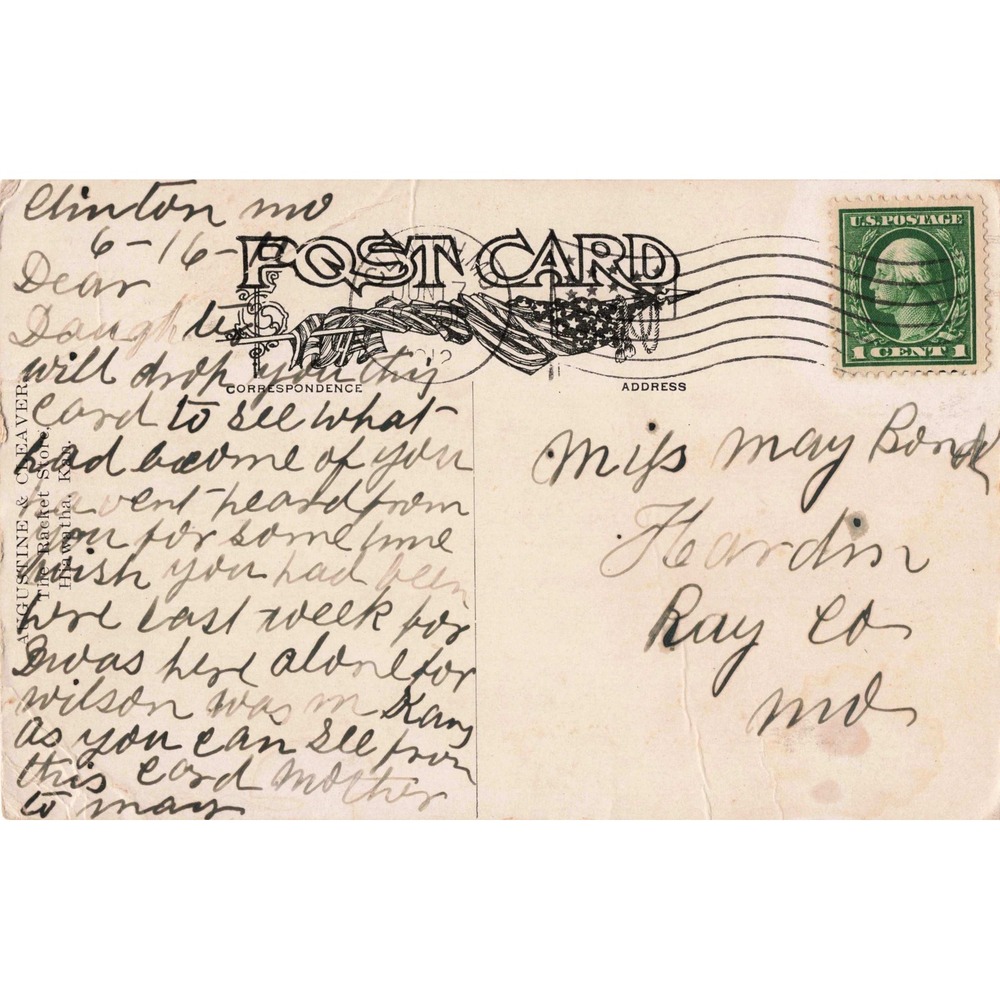 Clinton mo
6-16-
POST CARD
Dear
Daughter
will drop you this
CORRESPONDENCE
card to see what
had become of you
havent heard from
you for some time
wish you had been
here last week for
I was here alone for
wilson was in Kans
as you can see from
this card Mother
to may
AUGUSTINE & CLEAVER,
The Racket Store,
Hiawatha, Kan.
JUN 17
12
U.S. POSTAGE
1 CENT 1
ADDRESS
Miss May Bond
Hardin
Ray Co
mo